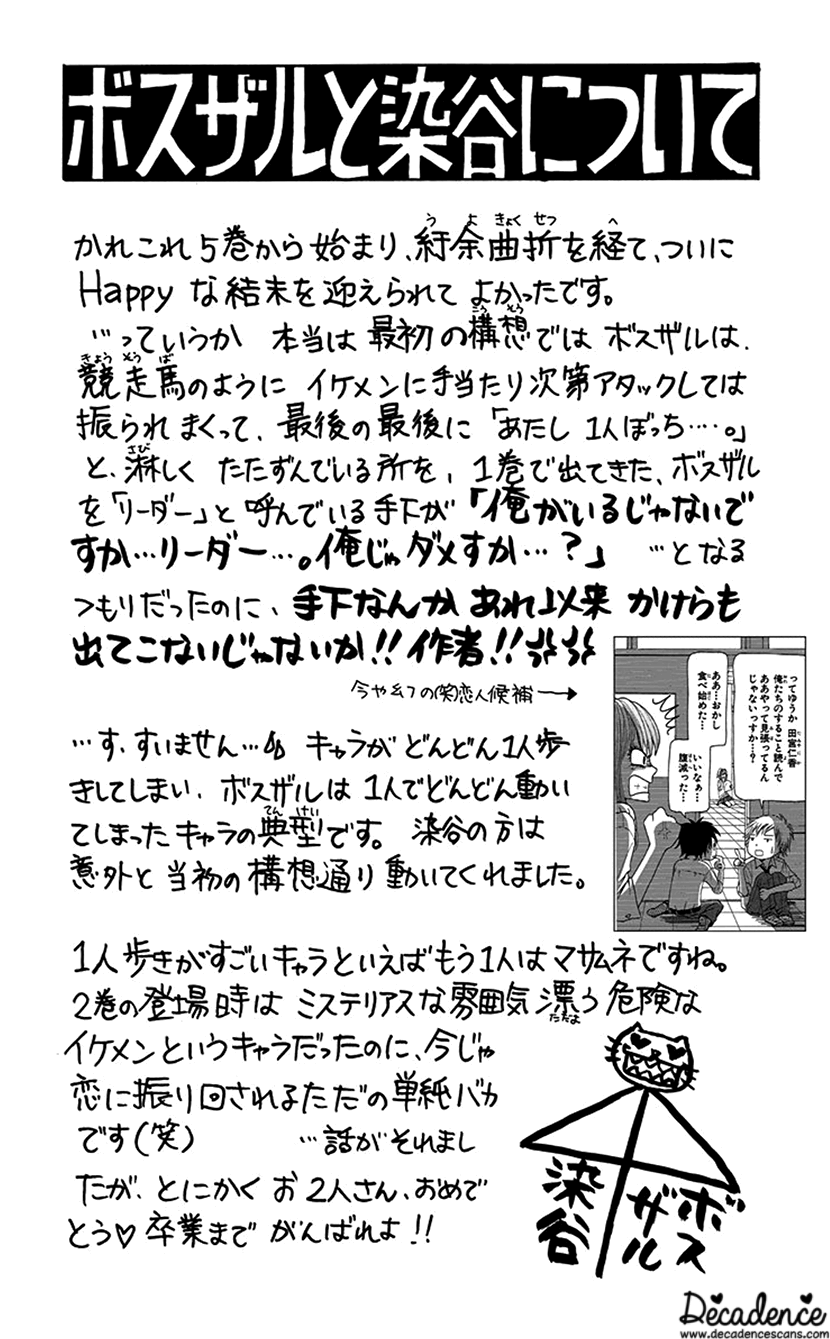 ボスザルと染谷について
かれこれ5巻から始まり、紆余曲折を経て、ついに
Happyな結末を迎えられてよかったです。
…っていうか 本当は最初の構想ではボスザルは、
競走馬のようにイケメンに手当たり次第アタックしては
振られまくって、最後の最後に「あたし1人ぼっち‥‥。」
と、淋しくたたずんでいる所を、1巻で出てきた、ボスザル
を「リーダー」と呼んでいる手下が「俺がいるじゃないで
すか…リーダー…。俺じゃダメすか…?」 …となる
つもりだったのに、手下なんかあれ以来かけらも
出てこないじゃないか!!作者!!
今や幻の(笑)恋人候補→
ってゆうか田宮仁香
俺たちのすること読んで
ああやって見張ってるん
じゃないっすか…?
ああ…おかし
食べ始めた…
いいなぁ…
腹減った…
…す、すいません… キャラがどんどん1人歩
きしてしまい、ボスザルは1人でどんどん動い
てしまったキャラの典型です。 染谷の方は
意外と当初の構想通り動いてくれました。
1人歩きがすごいキャラといえばもう1人はマサムネですね。
2巻の登場時はミステリアスな雰囲気漂う危険な
イケメンというキャラだったのに、今じゃ
恋に振り回されるただの単紙バカ
です(笑) …話がそれまし
たが、とにかくお2人さん、おめで
とう♡卒業までがんばれよ!!
染谷
ボスザル
Decadence
www.decadencescans.com